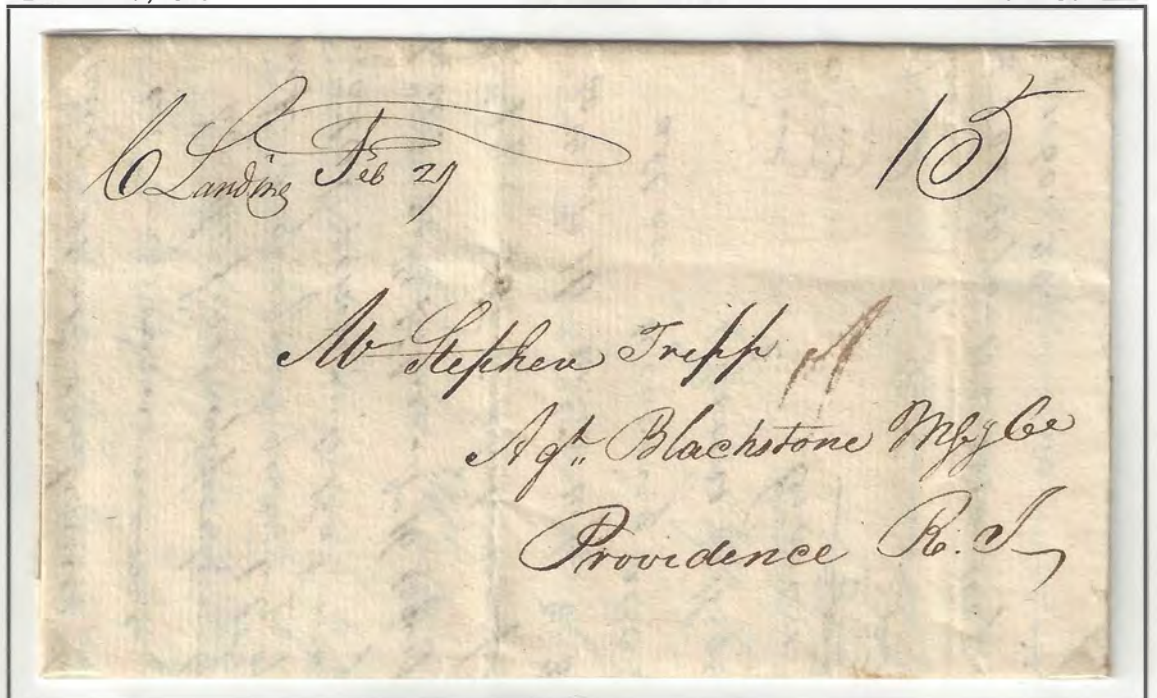 C Landing Feb 29
15
Mr Stephen Tripp
Agt. Blackstone Mfg Co
Providence R. I